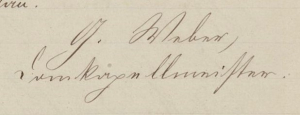 G. Weber,
Domkapellmeister.